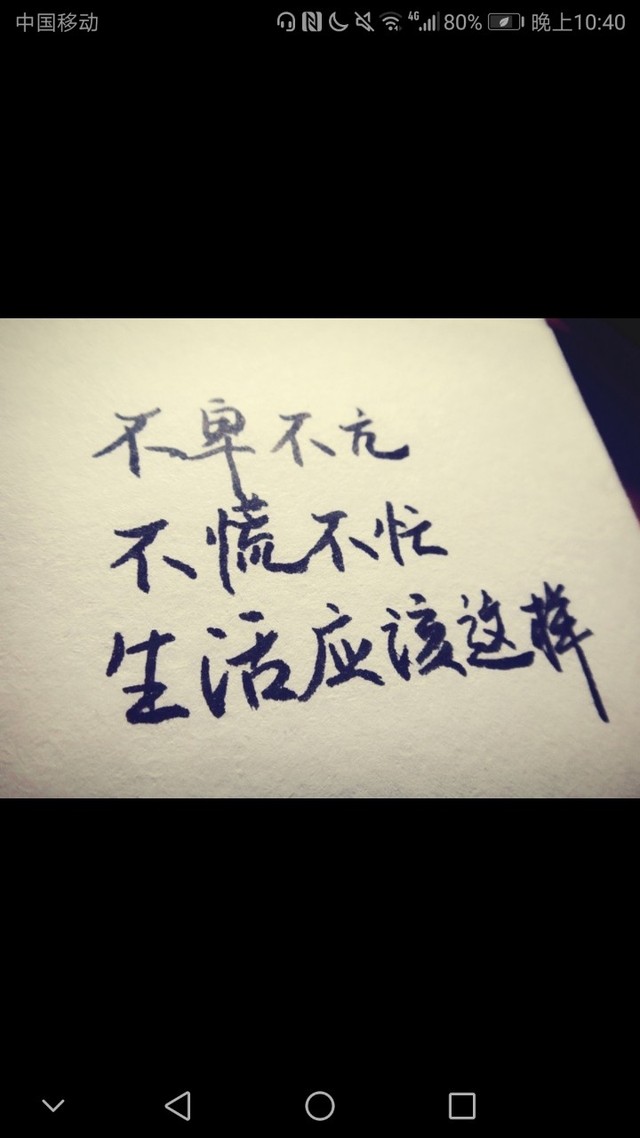 中国移动 4G 80% 晚上10:40
不卑不亢
不慌不忙
生活应该这样